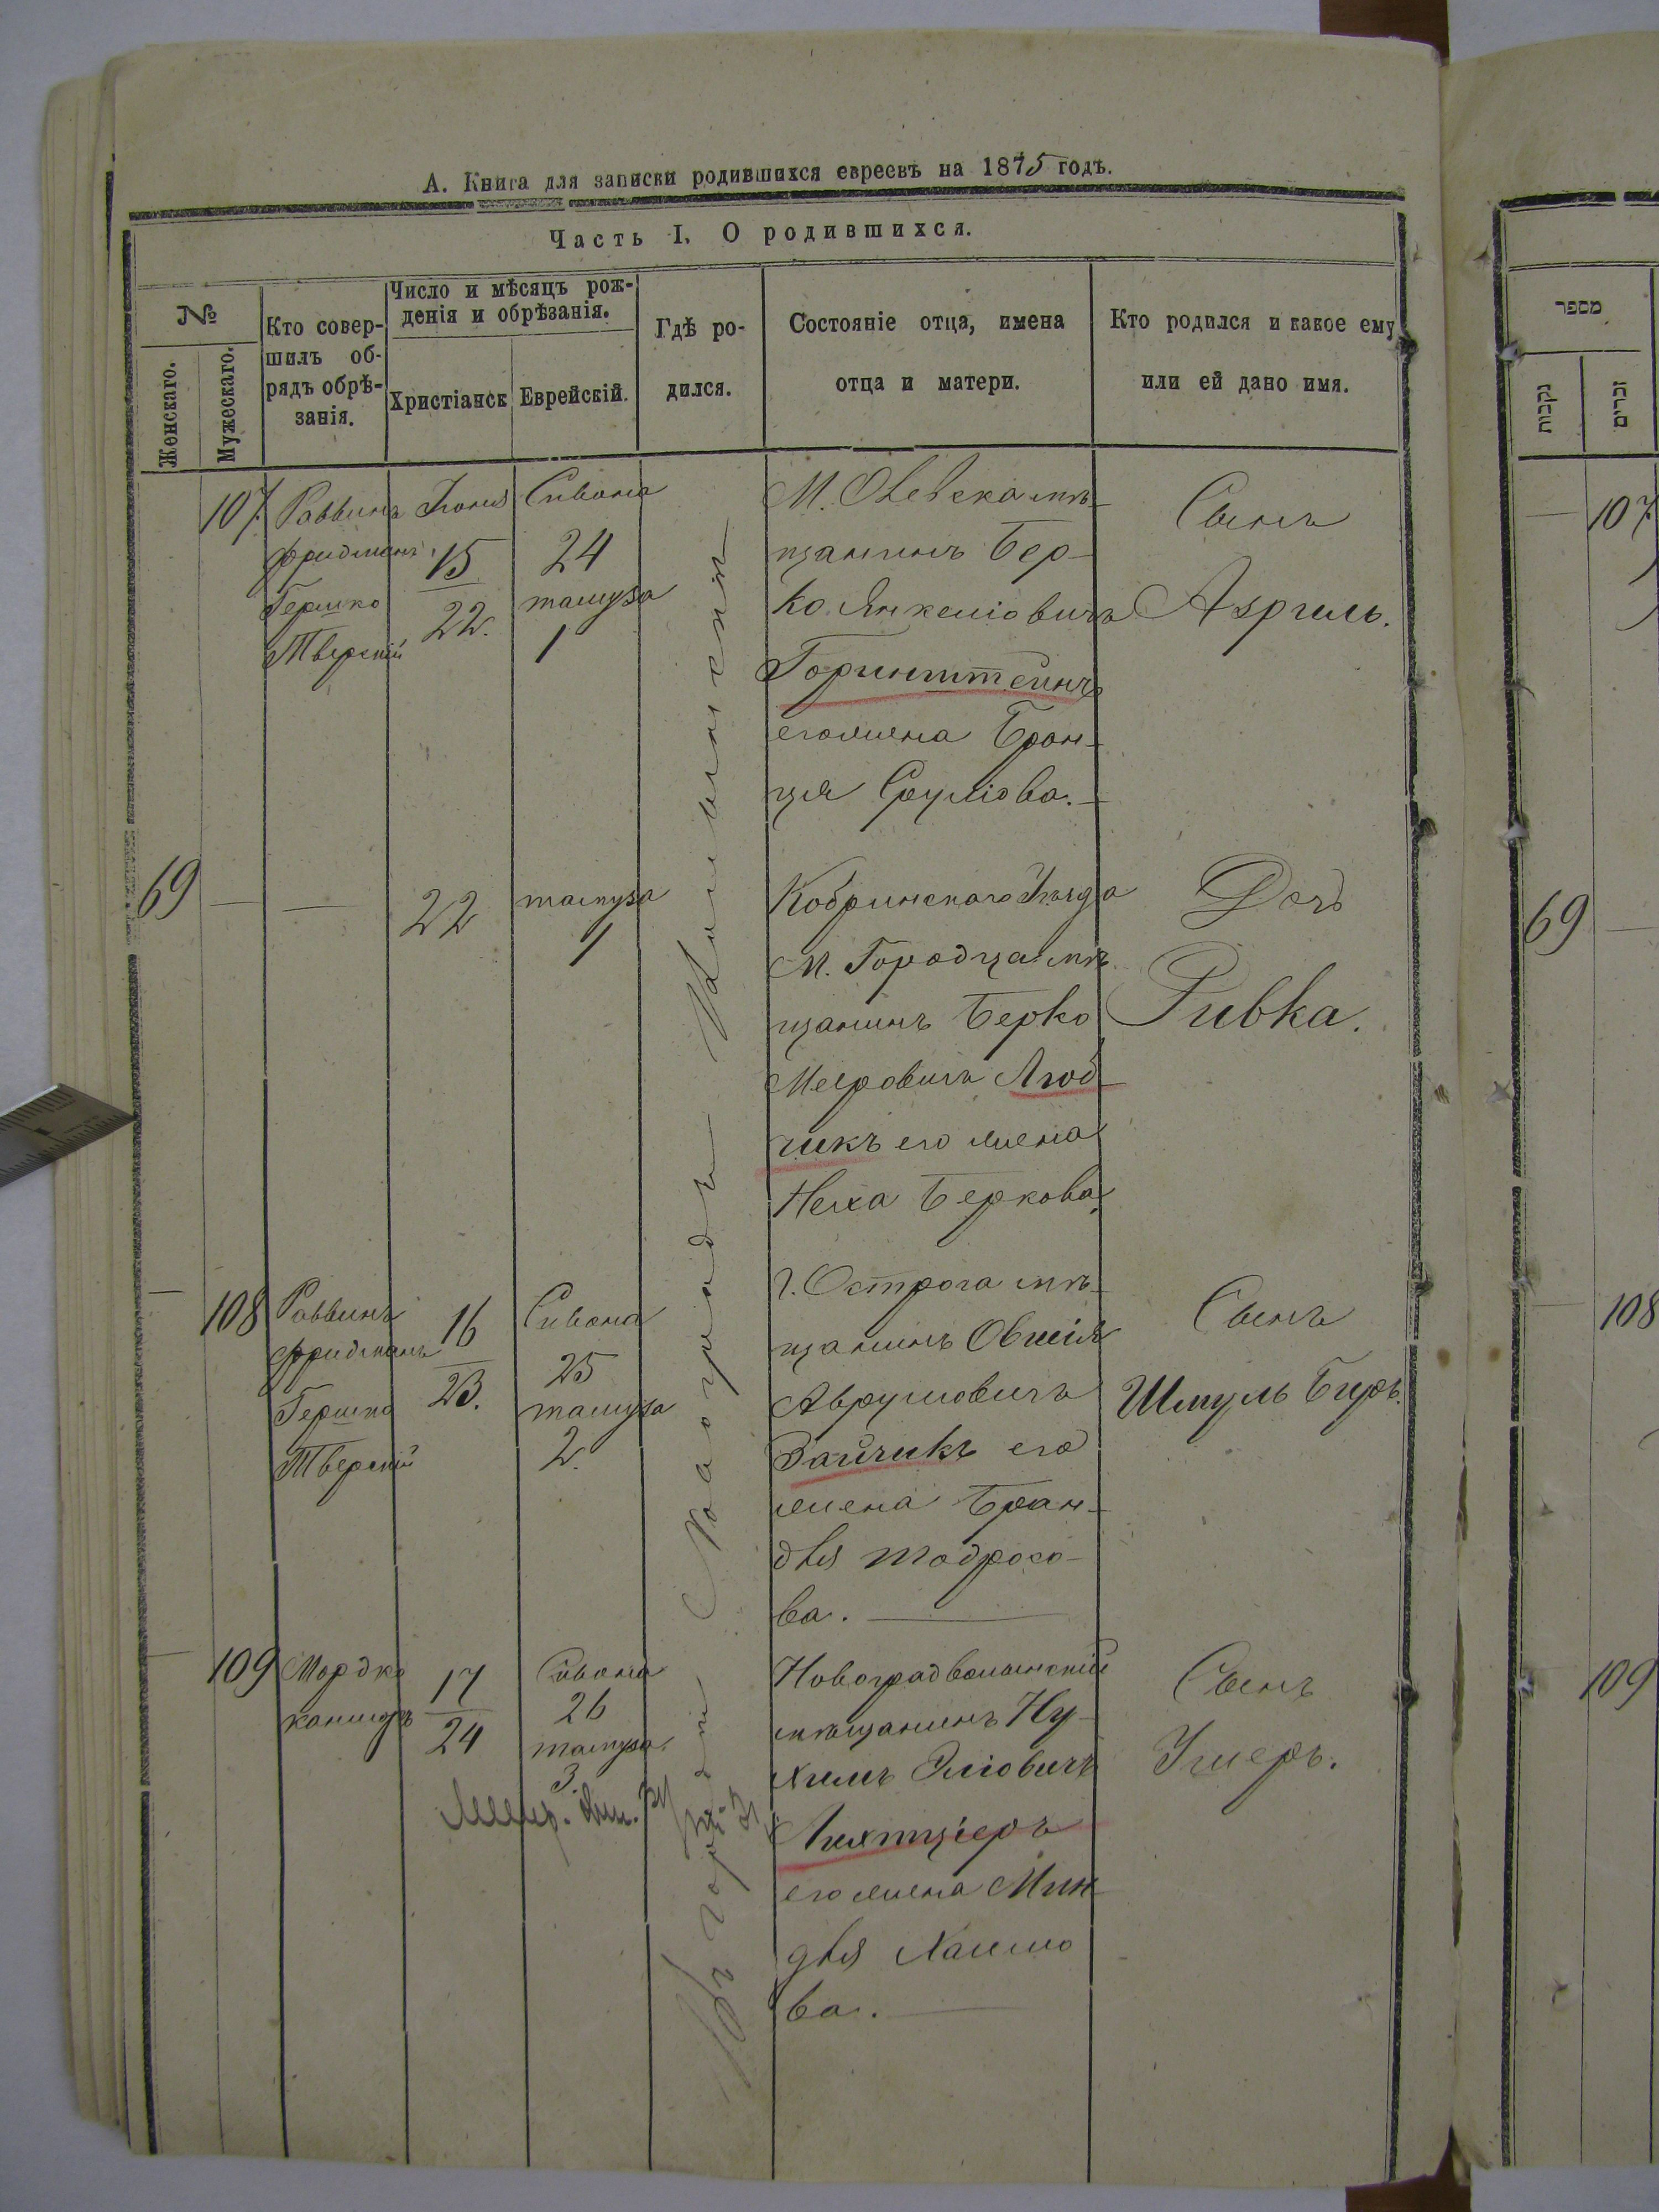 А. Книга для записки родившихся евреевъ на 1875 годъ.
Часть I. О родившихся.
№
Женскаго.
Мужескаго.
Кто совер-
шилъ об-
рядъ обрѣ-
занія.
Число и мѣсяцъ рож-
денія и обрѣзанія.
Христіанск
Еврейскій.
Гдѣ ро-
дился.
Состояніе отца, имена
отца и матери.
Кто родился и какое ему
или ей дано имя.
מספר
נקבות
זכרים
Въ городѣ Новоградъ Волынскѣ
107.
Раввинъ
Фридманъ,
Гершко
Тверскій
Іюня
15
22.
Сивона
24
тамуза
1
М. Олевска мѣ-
щанинъ Бер-
ко Янкеліовичъ
Горинштейнъ
его жена Бран-
ця Сруліова.
Сынъ
Азриль.
107
69
—
—
22
тамуза
1
Кобринскаго Уѣзда
М. Городца мѣ-
щанинъ Берко
Меeровичъ Люб
чикъ его жена
Неха Беркова.
Дочь
Ривка.
69
—
108
Раввинъ
Фридманъ
Гершко
Тверскій
16
23.
Сивона
25
тамуза
2.
г. Острога мѣ-
щанинъ Овшія
Аврумовичъ
Зайчикъ его
жена Бран-
для Тодросо-
ва.
Сынъ
Шмуль Беръ.
108
109
Мордко
17
24
Сивона
26
тамуза.
3.
Новоградволынскій
мѣщанинъ Ну-
химъ Эліовичъ
Лихтціеръ
его жена Мин
для Хаимо
ва.
Сынъ
Умеръ.
109